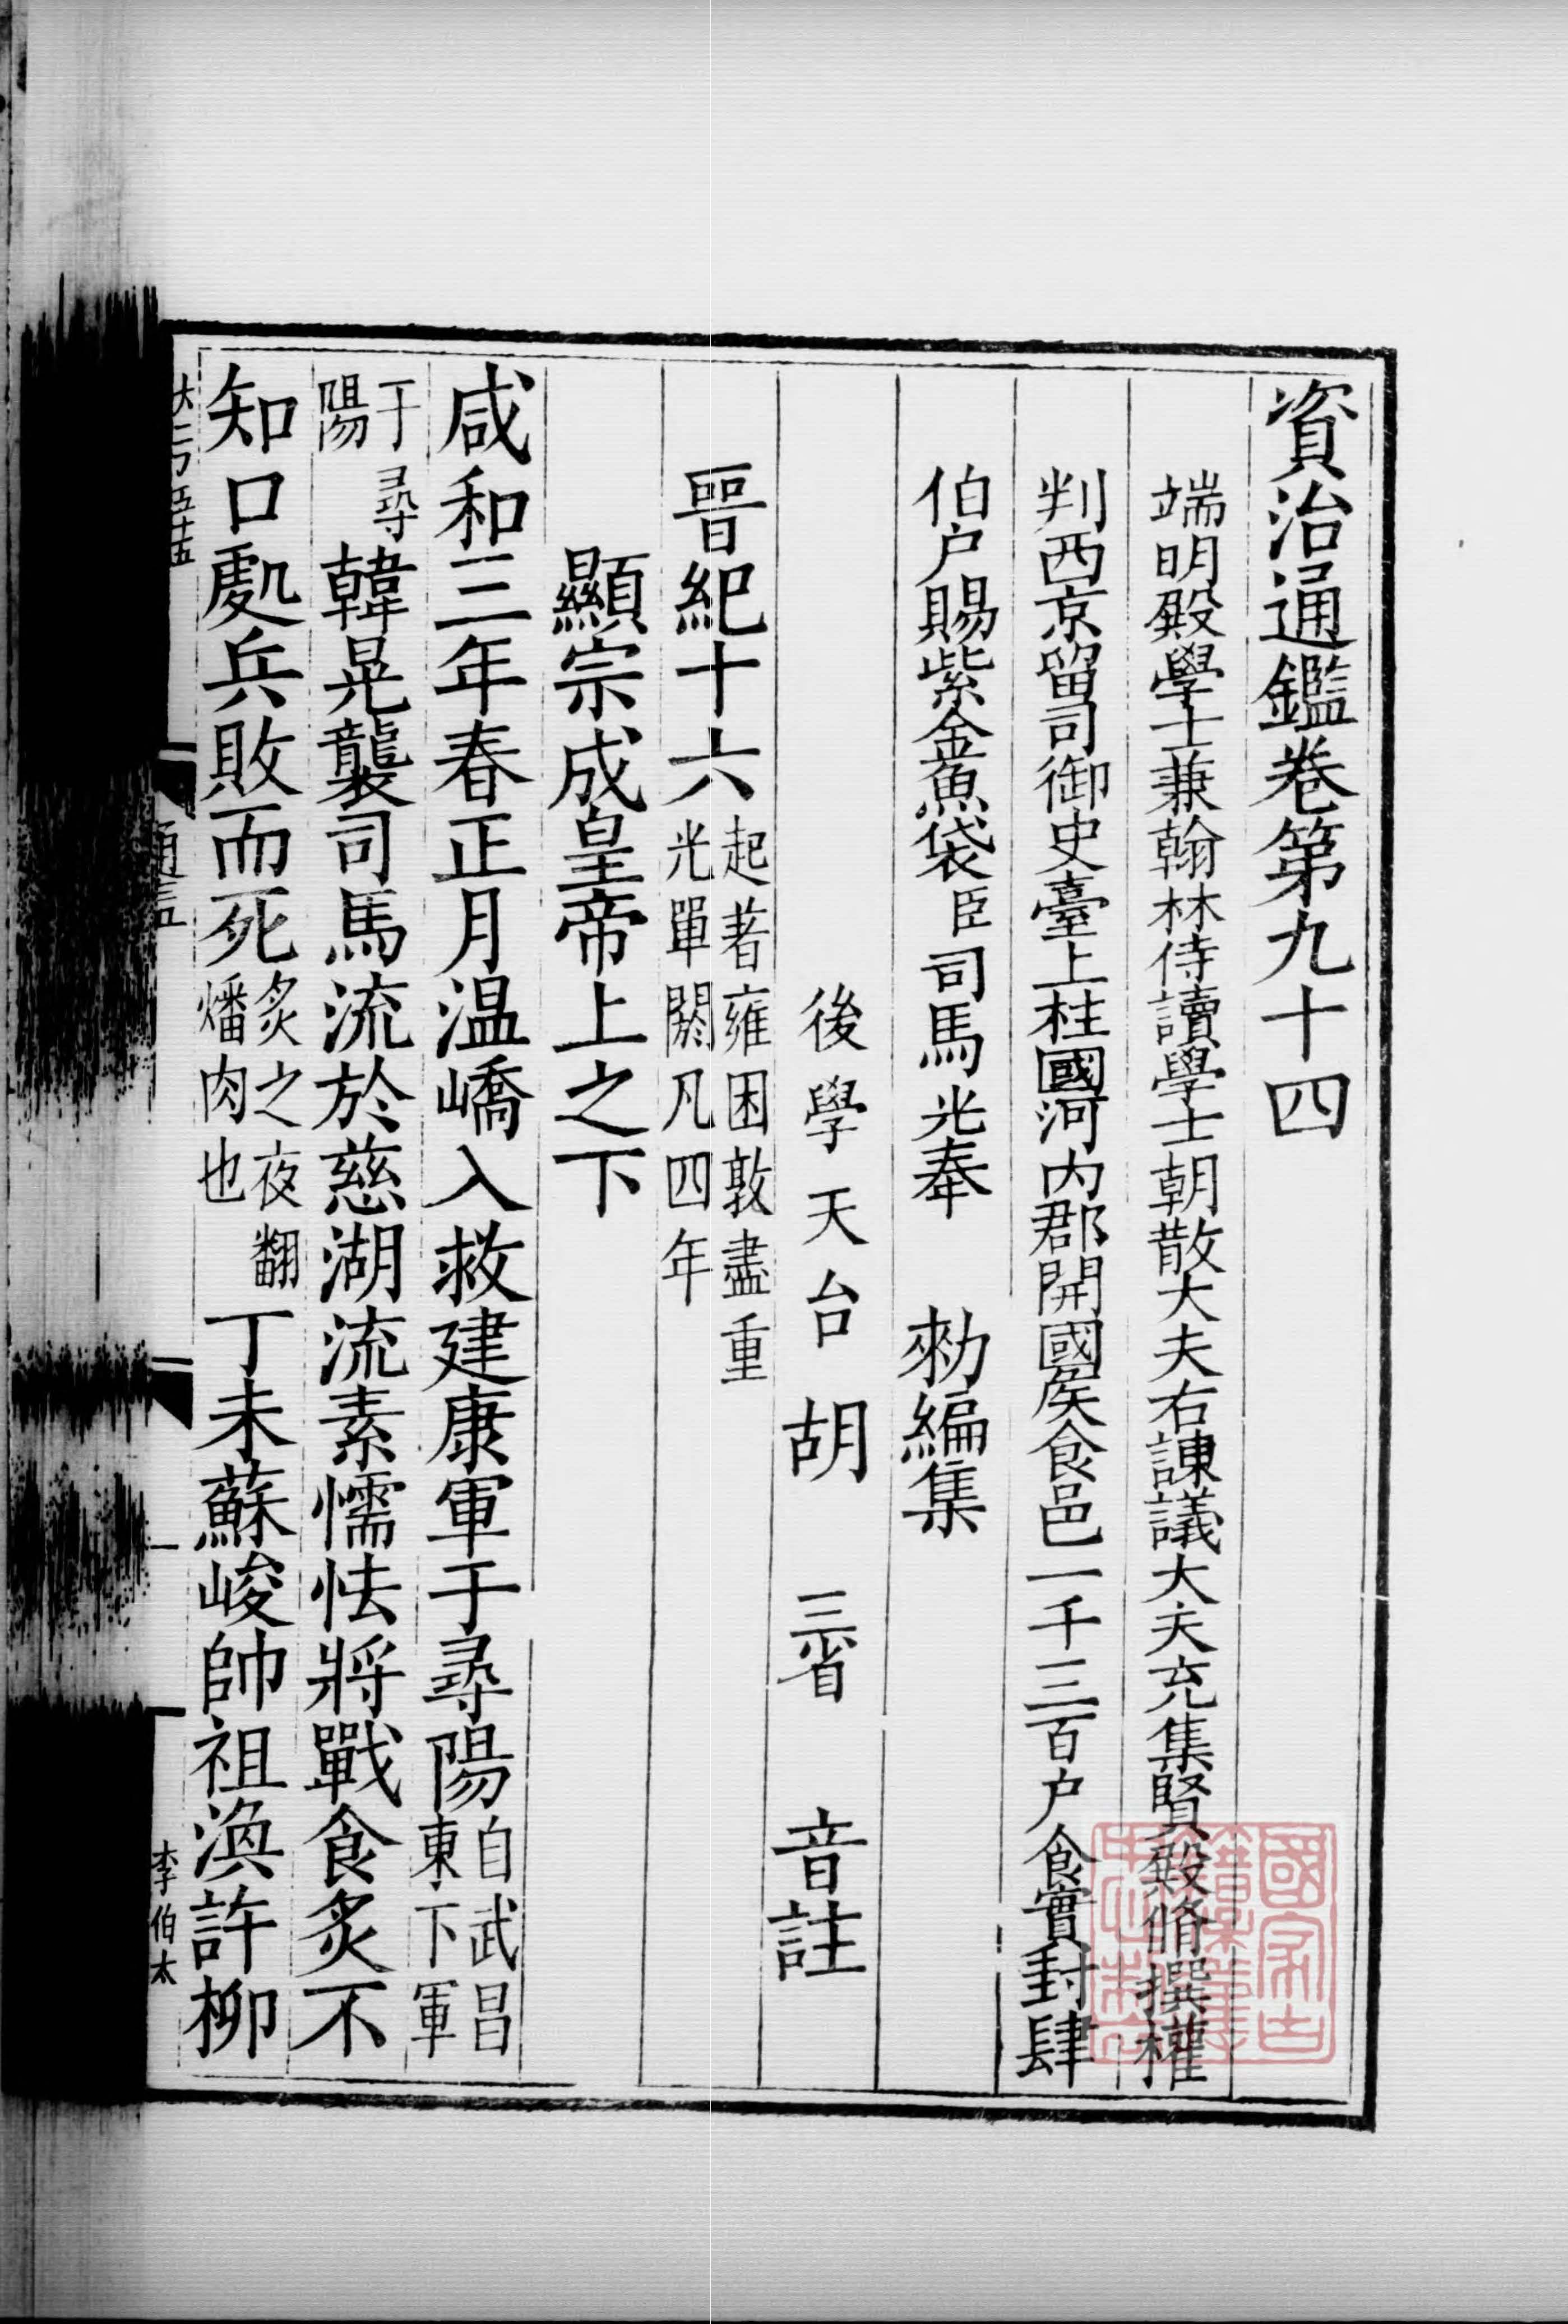 資治通鑑卷第九十四
端明殿學士兼翰林侍讀學士朝散大夫右諫議大夫充集賢殿脩撰權
判西京留司御史臺上柱國河内郡開國矦食邑一千三百户食實封肆
伯户賜紫金魚袋臣司馬光奉 勑編集
後學天台胡三省音註
晉紀十六起著雍困敦盡重光單閼凡四年
顯宗成皇帝上之下
咸和三年春正月温嶠入救建康軍于尋陽自武昌東下軍
于尋陽韓晃襲司馬流於慈湖流素懦怯將戰食炙不
知口處兵敗而死炙之夜翻燔肉也丁未蘇峻帥祖渙許柳
李伯太